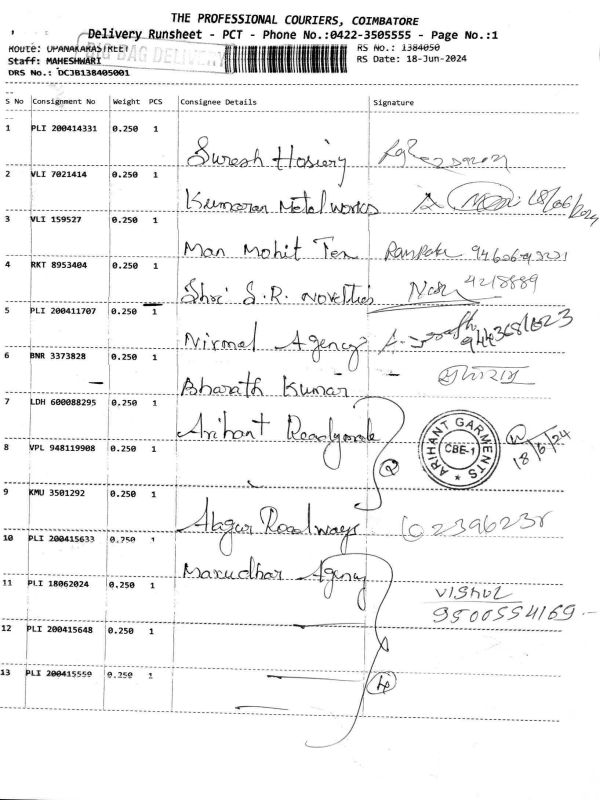 THE PROFESSIONAL COURIERS, COIMBATORE
Delivery Runsheet - PCT - Phone No.:0422-3505555 - Page No.:1
Route: UPANAKARASTREET RS No.: 1384050
BIG BAG DELIVERY
Staff: MAHESHWARI RS Date: 18-Jun-2024
DRS No.: DCJB138405001
S No Consignment No Weight PCS Consignee Details Signature
1 PLI 200414331 0.250 1 Suresh Hosiery
2 VLI 7021414 0.250 1 Kumaran Metal works 18/06/2024
3 VLI 159527 0.250 1 Man Mohit Tex
4 RKT 8953404 0.250 1 Shri S.R. Novelties 4218889
5 PLI 200411707 0.250 1 Nirmal Agency
6 BNR 3373828 0.250 1 Bharath Kumar
7 LDH 600088295 0.250 1 Arihant Readymade
ARIHANT GARMENTS
CBE-1
18/6/24
8 VPL 948119908 0.250 1
2
9 KMU 3501292 0.250 1 Alagar Roadways
10 PLI 200415633 0.250 1 Marudhar Agency
11 PLI 18062024 0.250 1
9500554169
12 PLI 200415648 0.250 1
13 PLI 200415559 0.250 1
4